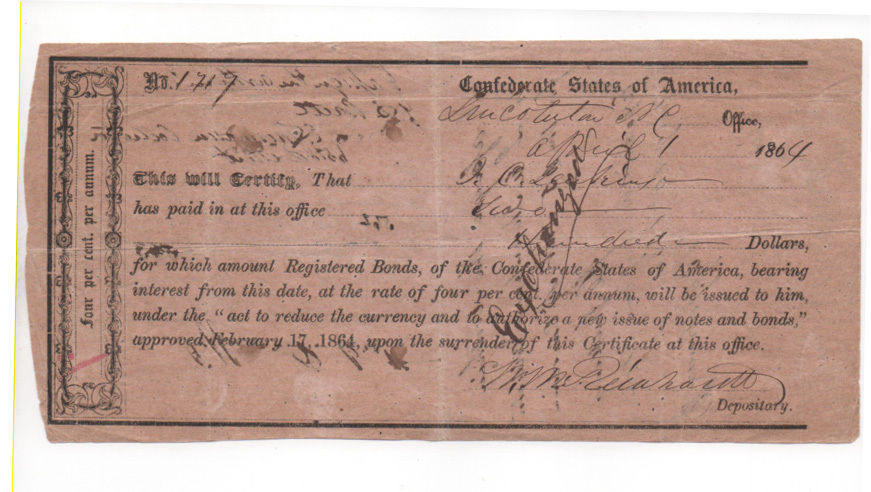 Four per cent. per annum.
No. 1717
Confederate States of America,
Lincolnton NC Office,
April 1 1864
This will Certify, That
has paid in at this office Two
Hundred Dollars,
for which amount Registered Bonds, of the Confederate States of America, bearing
interest from this date, at the rate of four per cent. per annum, will be issued to him,
under the "act to reduce the currency and to authorize a new issue of notes and bonds,"
approved February 17, 1864, upon the surrender of this Certificate at this office.
Exchanged
W. M. Reinhardt
Depositary.